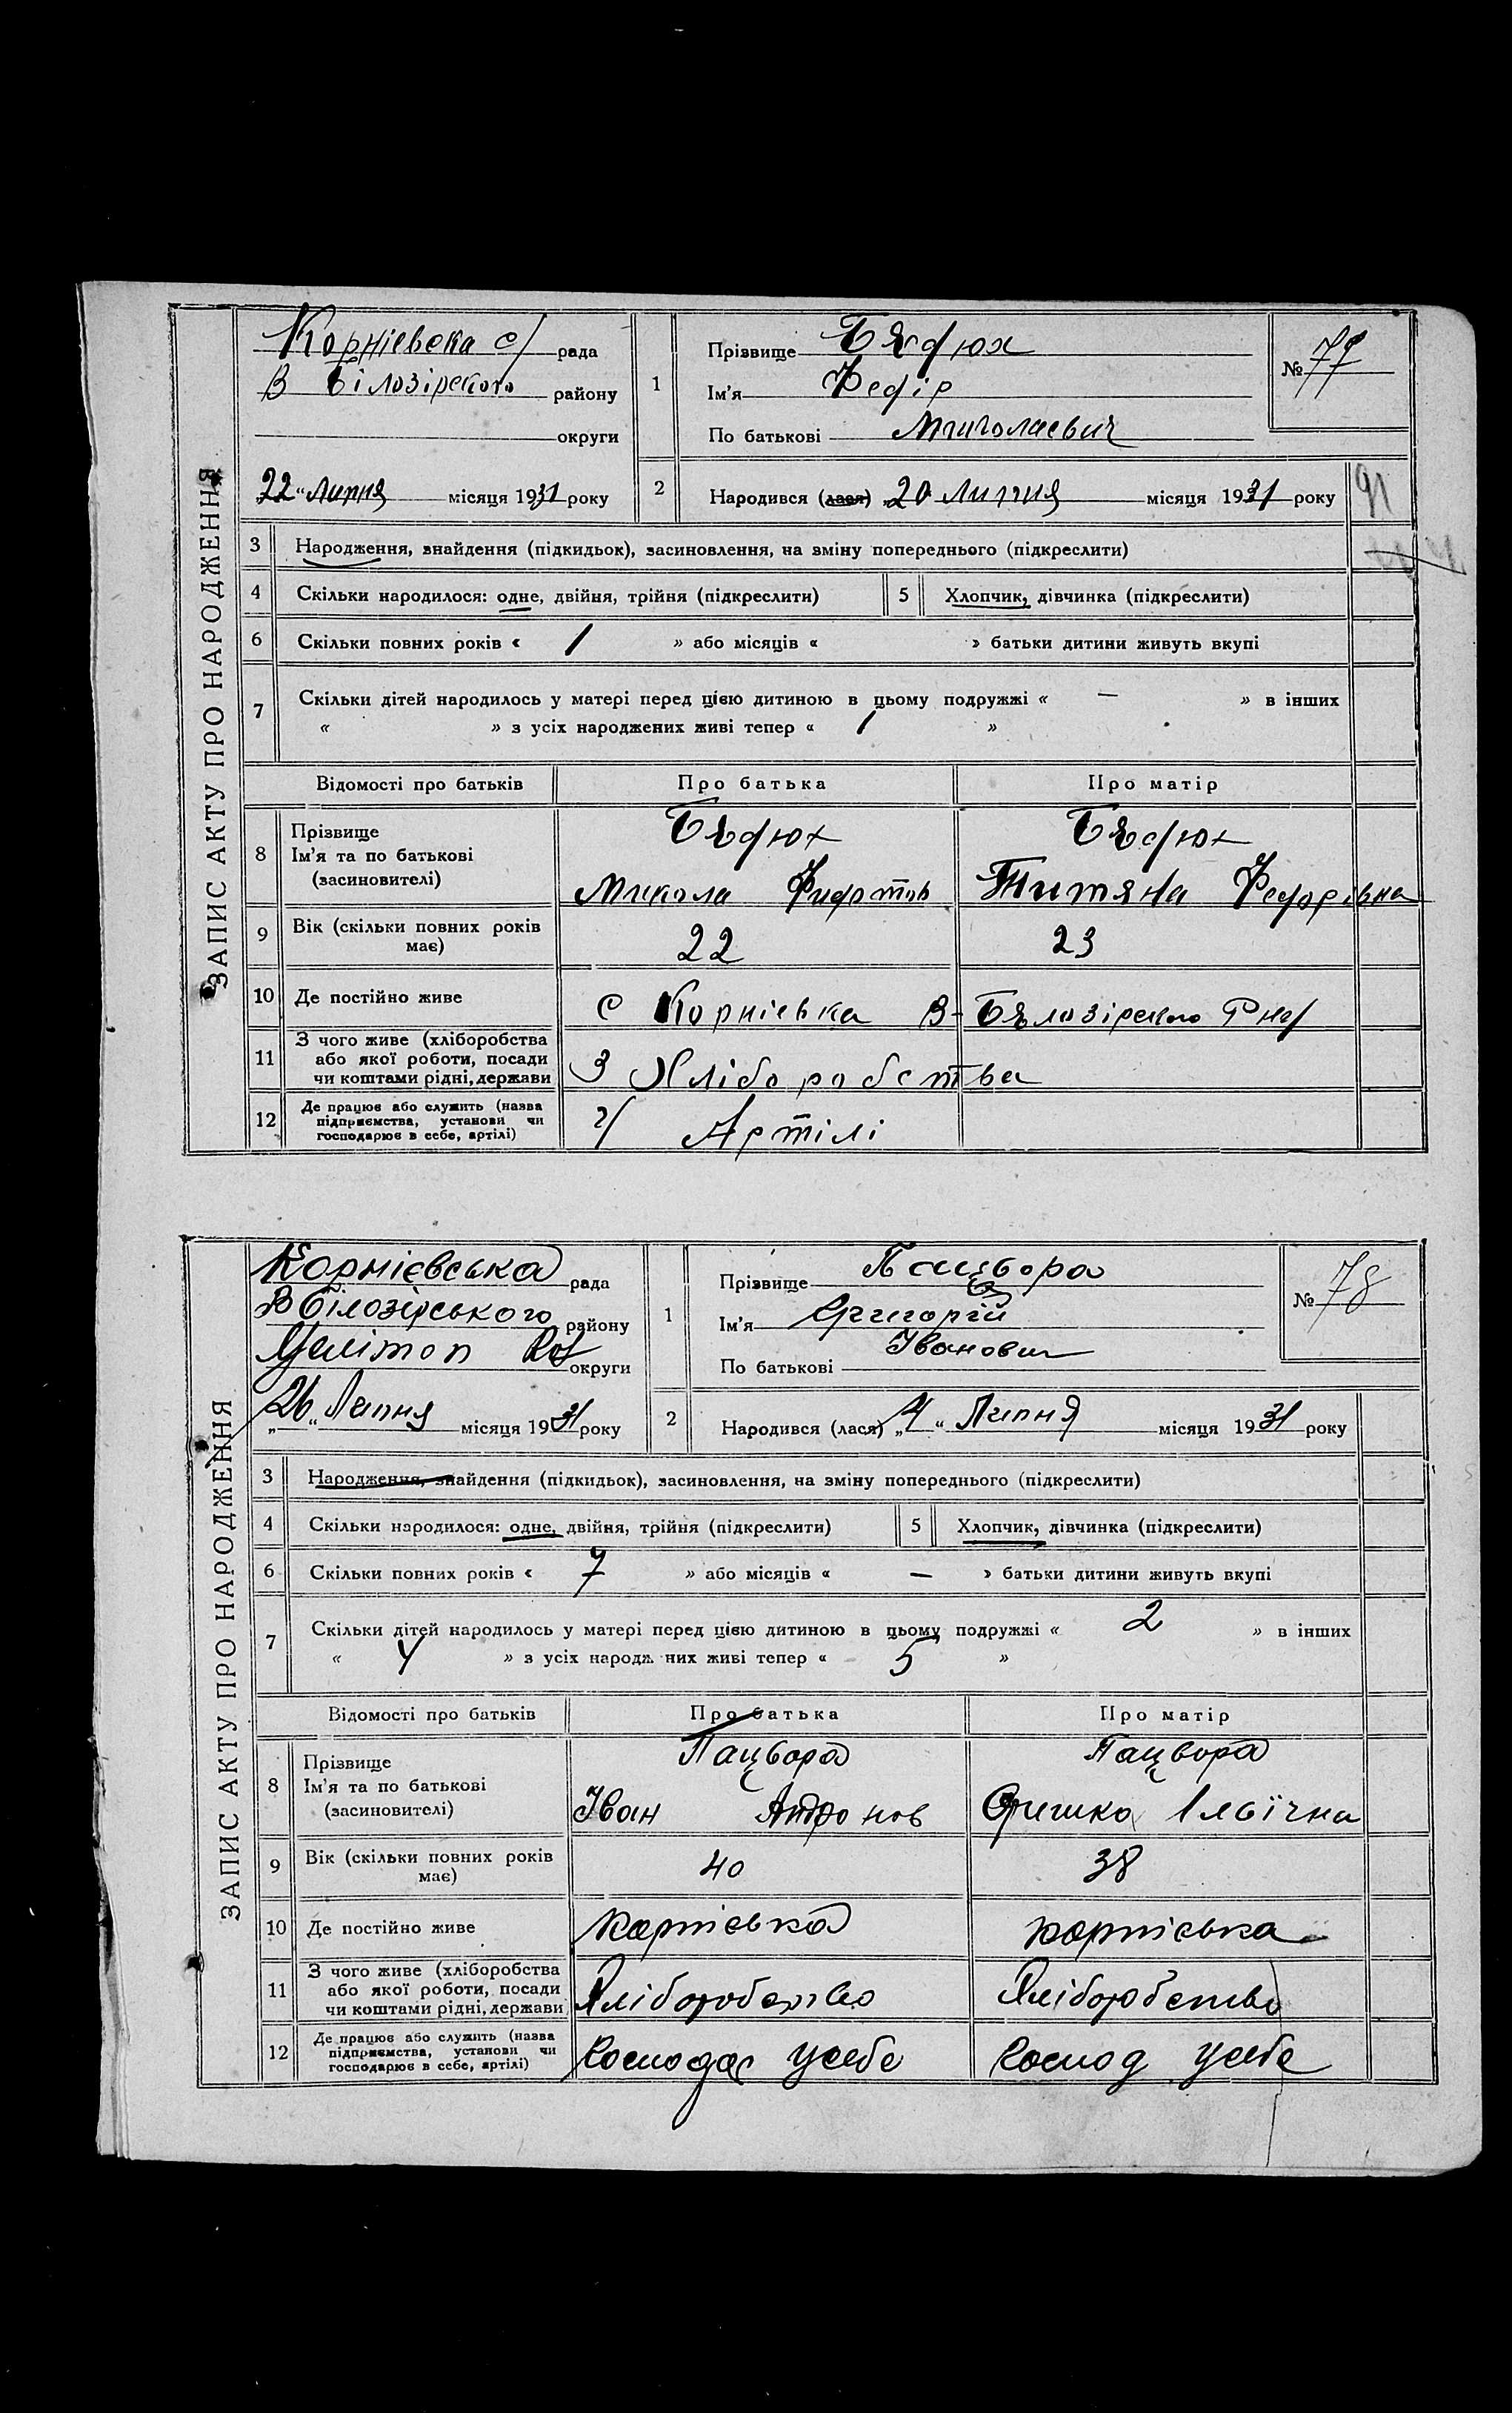 ЗАПИС АКТУ ПРО НАРОДЖЕННЯ
Корнієвска с/ рада
В Білозірского району
округи
22 " Липня місяця 1931 року
1
Прізвище
Ім'я Федір
По батькові
№ 77
2
Народився (лася) 20 Липня місяця 1931 року
91
3 Народження, знайдення (підкидьок), засиновлення, на зміну попереднього (підкреслити)
4 Скільки народилося: одне, двійня, трійня (підкреслити)
5 Хлопчик, дівчинка (підкреслити)
6 Скільки повних років « 1 » або місяців « » батьки дитини живуть вкупі
7 Скільки дітей народилось у матері перед цією дитиною в цьому подружжі « — » в інших
« » з усіх народжених живі тепер « 1 »
Відомості про батьків Про батька Про матір
8 Прізвище
Ім'я та по батькові
(засиновителі)
Микола
Титяна Федорівна
9 Вік (скільки повних років має) 22 23
10 Де постійно живе с Корнієвка В-Бялозірского
11 З чого живе (хліборобства або якої роботи, посади чи коштами рідні, держави З Хліборобства
12 Де працює або служить (назва підприємства, установи чи господарює в себе, артілі) Артілі
ЗАПИС АКТУ ПРО НАРОДЖЕННЯ
Корнієвська рада
В Білозірського району
округи
26 " Липня місяця 1931 року
1
Прізвище Пацвора
Ім'я Григорій
По батькові Іванович
№ 78
2
Народився (лася) „ " Липня місяця 1931 року
3 Народження, знайдення (підкидьок), засиновлення, на зміну попереднього (підкреслити)
4 Скільки народилося: одне, двійня, трійня (підкреслити)
5 Хлопчик, дівчинка (підкреслити)
6 Скільки повних років « 7 » або місяців « — » батьки дитини живуть вкупі
7 Скільки дітей народилось у матері перед цією дитиною в цьому подружжі « 2 » в інших
« » з усіх народж них живі тепер « 5 »
Відомості про батьків Про батька Про матір
8 Прізвище
Ім'я та по батькові
(засиновителі)
Пацвора Пацвора
Іван Ільїчна
9 Вік (скільки повних років має) 40 38
10 Де постійно живе Корнієвка Корнієвка
11 З чого живе (хліборобства або якої роботи, посади чи коштами рідні, держави Хліборобство Хліборобство
12 Де працює або служить (назва підприємства, установи чи господарює в себе, артілі) Господар усебе Господ усебе